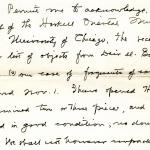 Permit me to acknowledge,
of the Haskell Oriental Mus
University of Chicago, the rece
list of objects from Deir el-Ba
(1) one case of fragments of
and Nov. 1. I have opened th
mined two or three pieces, and
d in good condition, no dow
We shall not however unpack